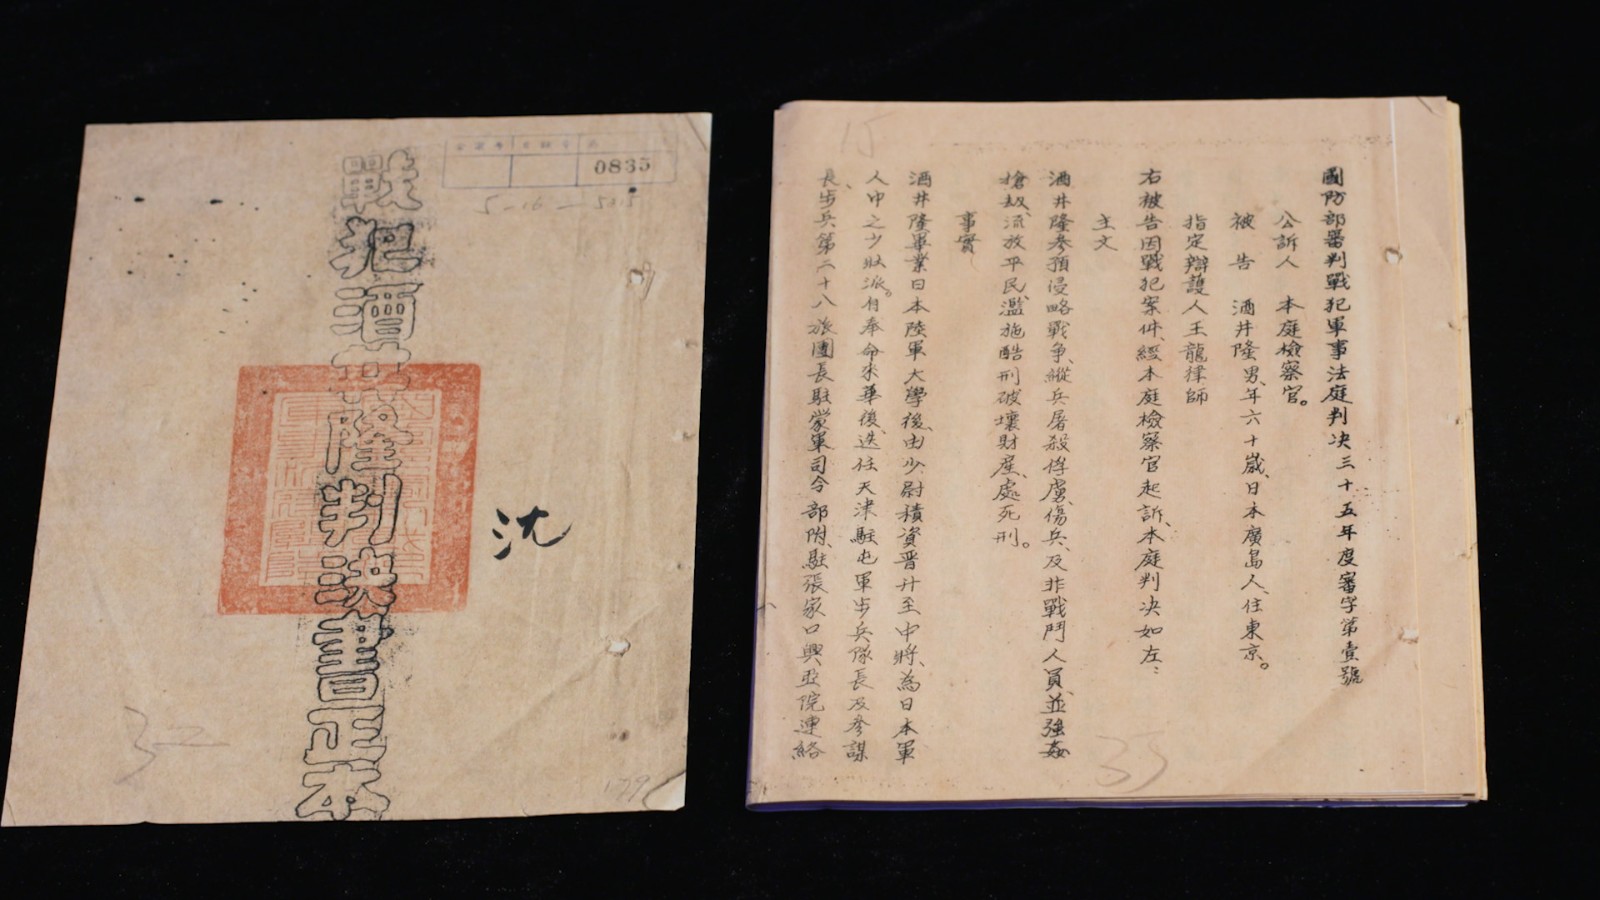 戰犯酒井隆判決書正本
0835
沈
國防部審判戰犯軍事法庭判决三十五年度審字第壹號
公訴人 本庭檢察官。
被告 酒井隆男、年六十歲、日本廣島人、住東京。
指定辯護人王龍律師
右被告因戰犯案件、經本庭檢察官起訴、本庭判决如左：
主文
酒井隆參預侵略戰爭、縱兵屠殺俘虜、傷兵、及非戰鬥人員、並強姦
搶刼、流放平民、濫施酷刑、破壞財產、處死刑。
事實
酒井隆畢業日本陸軍大學後、由少尉積資晋升至中將、為日本軍
人中之少壯派。自奉命來華後、迭任天津駐屯軍步兵隊長及參謀
長、步兵第二十八旅團長、駐蒙軍司令部附、駐張家口興亞院連絡
33
179